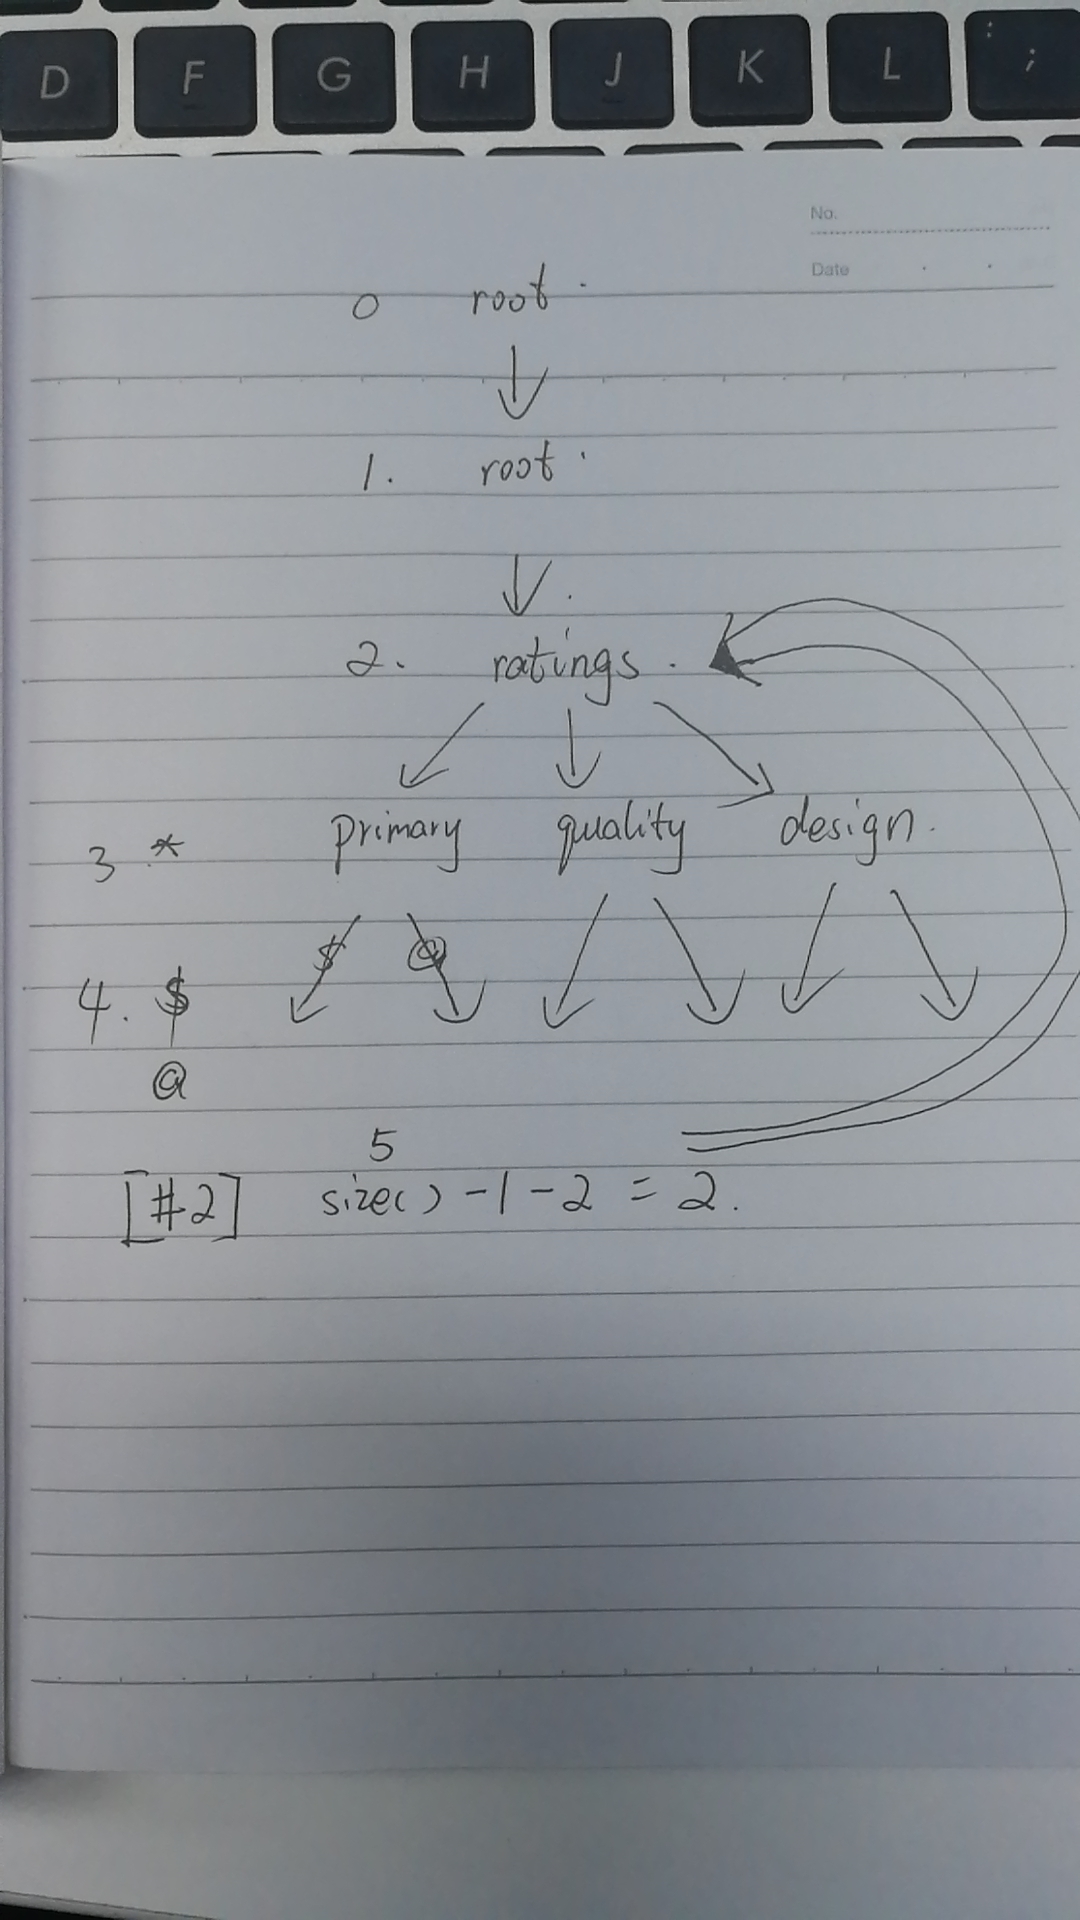 D F G H J K L : ;
No.
Date
0 root
1. root
2. ratings
3 * primary quality design
$ @
4. $
@
5
[#2] size() -1 -2 = 2.